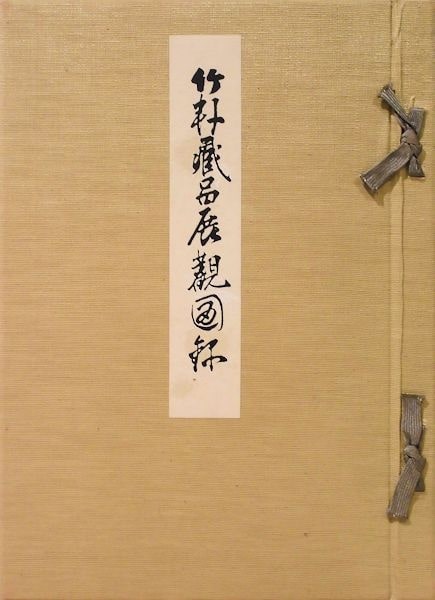 竹軒藏品展觀圖録